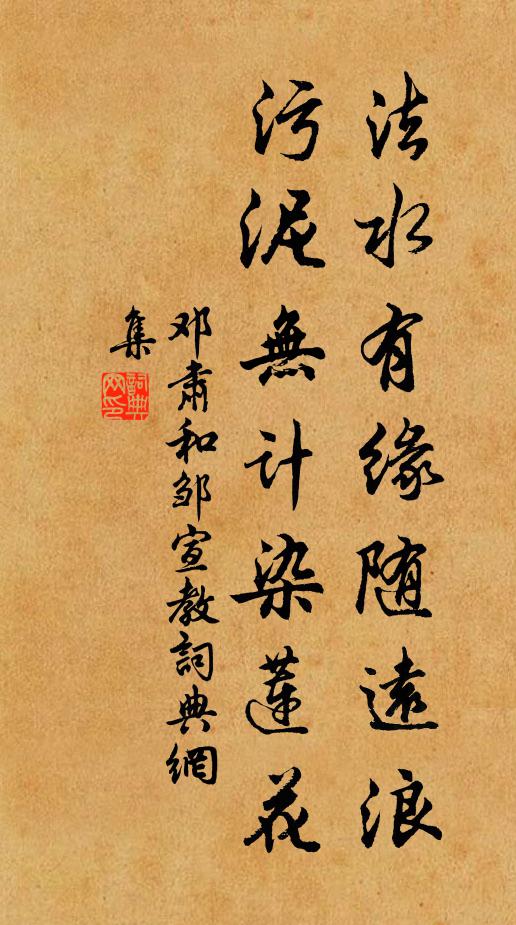 法水有缘随遠浪
污泥無计染蓮花
邓肅和邹宣教詞典網
集
詞典
网印